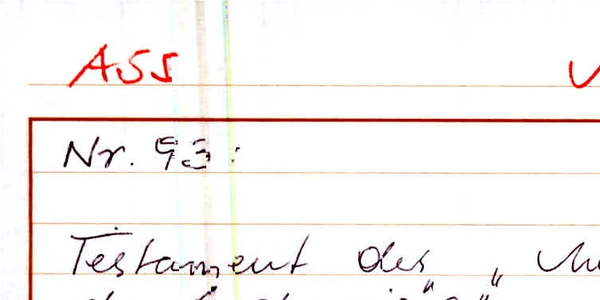 ASS
Nr. 93:
Testament des „